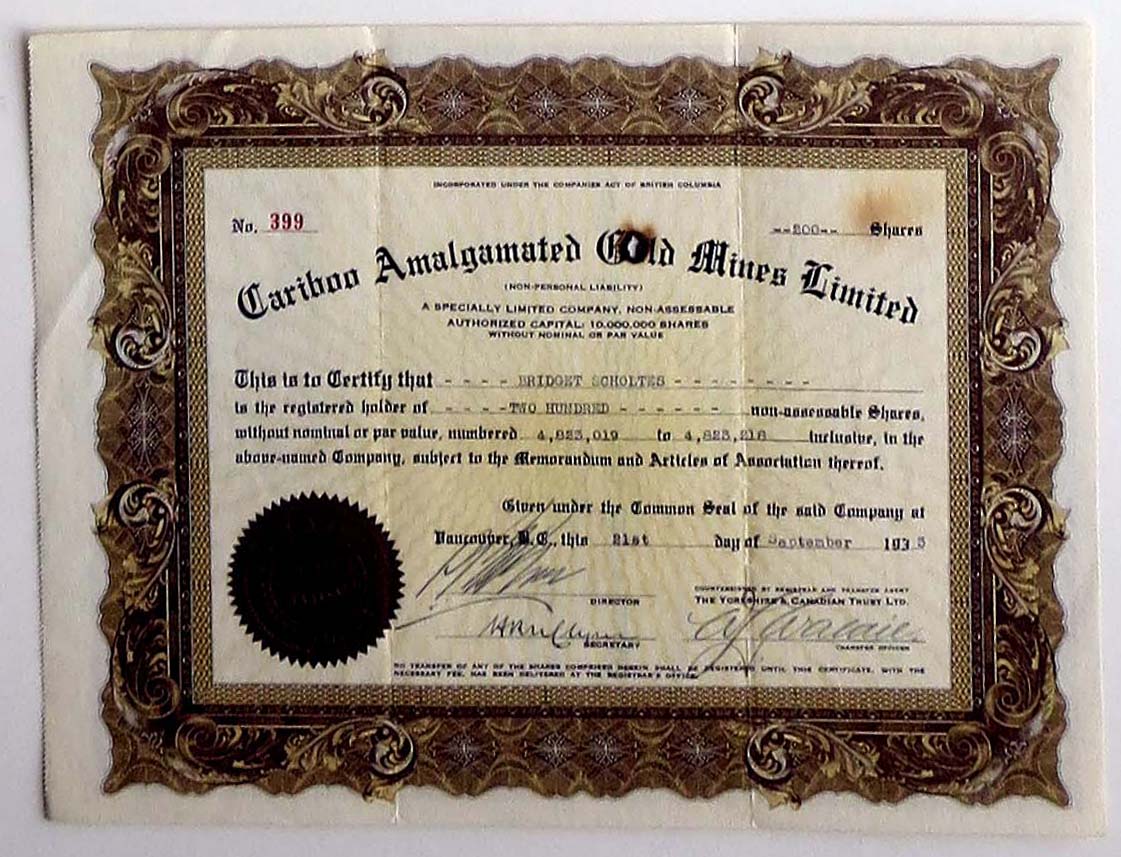 INCORPORATED UNDER THE COMPANIES ACT OF BRITISH COLUMBIA
No. 399 --200-- Shares
Cariboo Amalgamated Gold Mines Limited
(NON-PERSONAL LIABILITY)
A SPECIALLY LIMITED COMPANY, NON-ASSESSABLE
AUTHORIZED CAPITAL: 10,000,000 SHARES
WITHOUT NOMINAL OR PAR VALUE
This is to Certify that - - - - BRIDGET SCHOLTES - - - - - - - -
is the registered holder of - - - - -TWO HUNDRED - - - - - - non-assessable Shares,
without nominal or par value, numbered 4,823,019 to 4,823,218 inclusive, in the
above-named Company, subject to the Memorandum and Articles of Association thereof.
Given under the Common Seal of the said Company at
Vancouver, B.C., this 21st day of September 1933
DIRECTOR
COUNTERSIGNED BY REGISTRAR AND TRANSFER AGENT
THE YORKSHIRE & CANADIAN TRUST LTD.
SECRETARY
TRANSFER OFFICER
NO TRANSFER OF ANY OF THE SHARES COMPRISED HEREIN SHALL BE REGISTERED UNTIL THIS CERTIFICATE, WITH THE
NECESSARY FEE, HAS BEEN DELIVERED AT THE REGISTRAR'S OFFICE